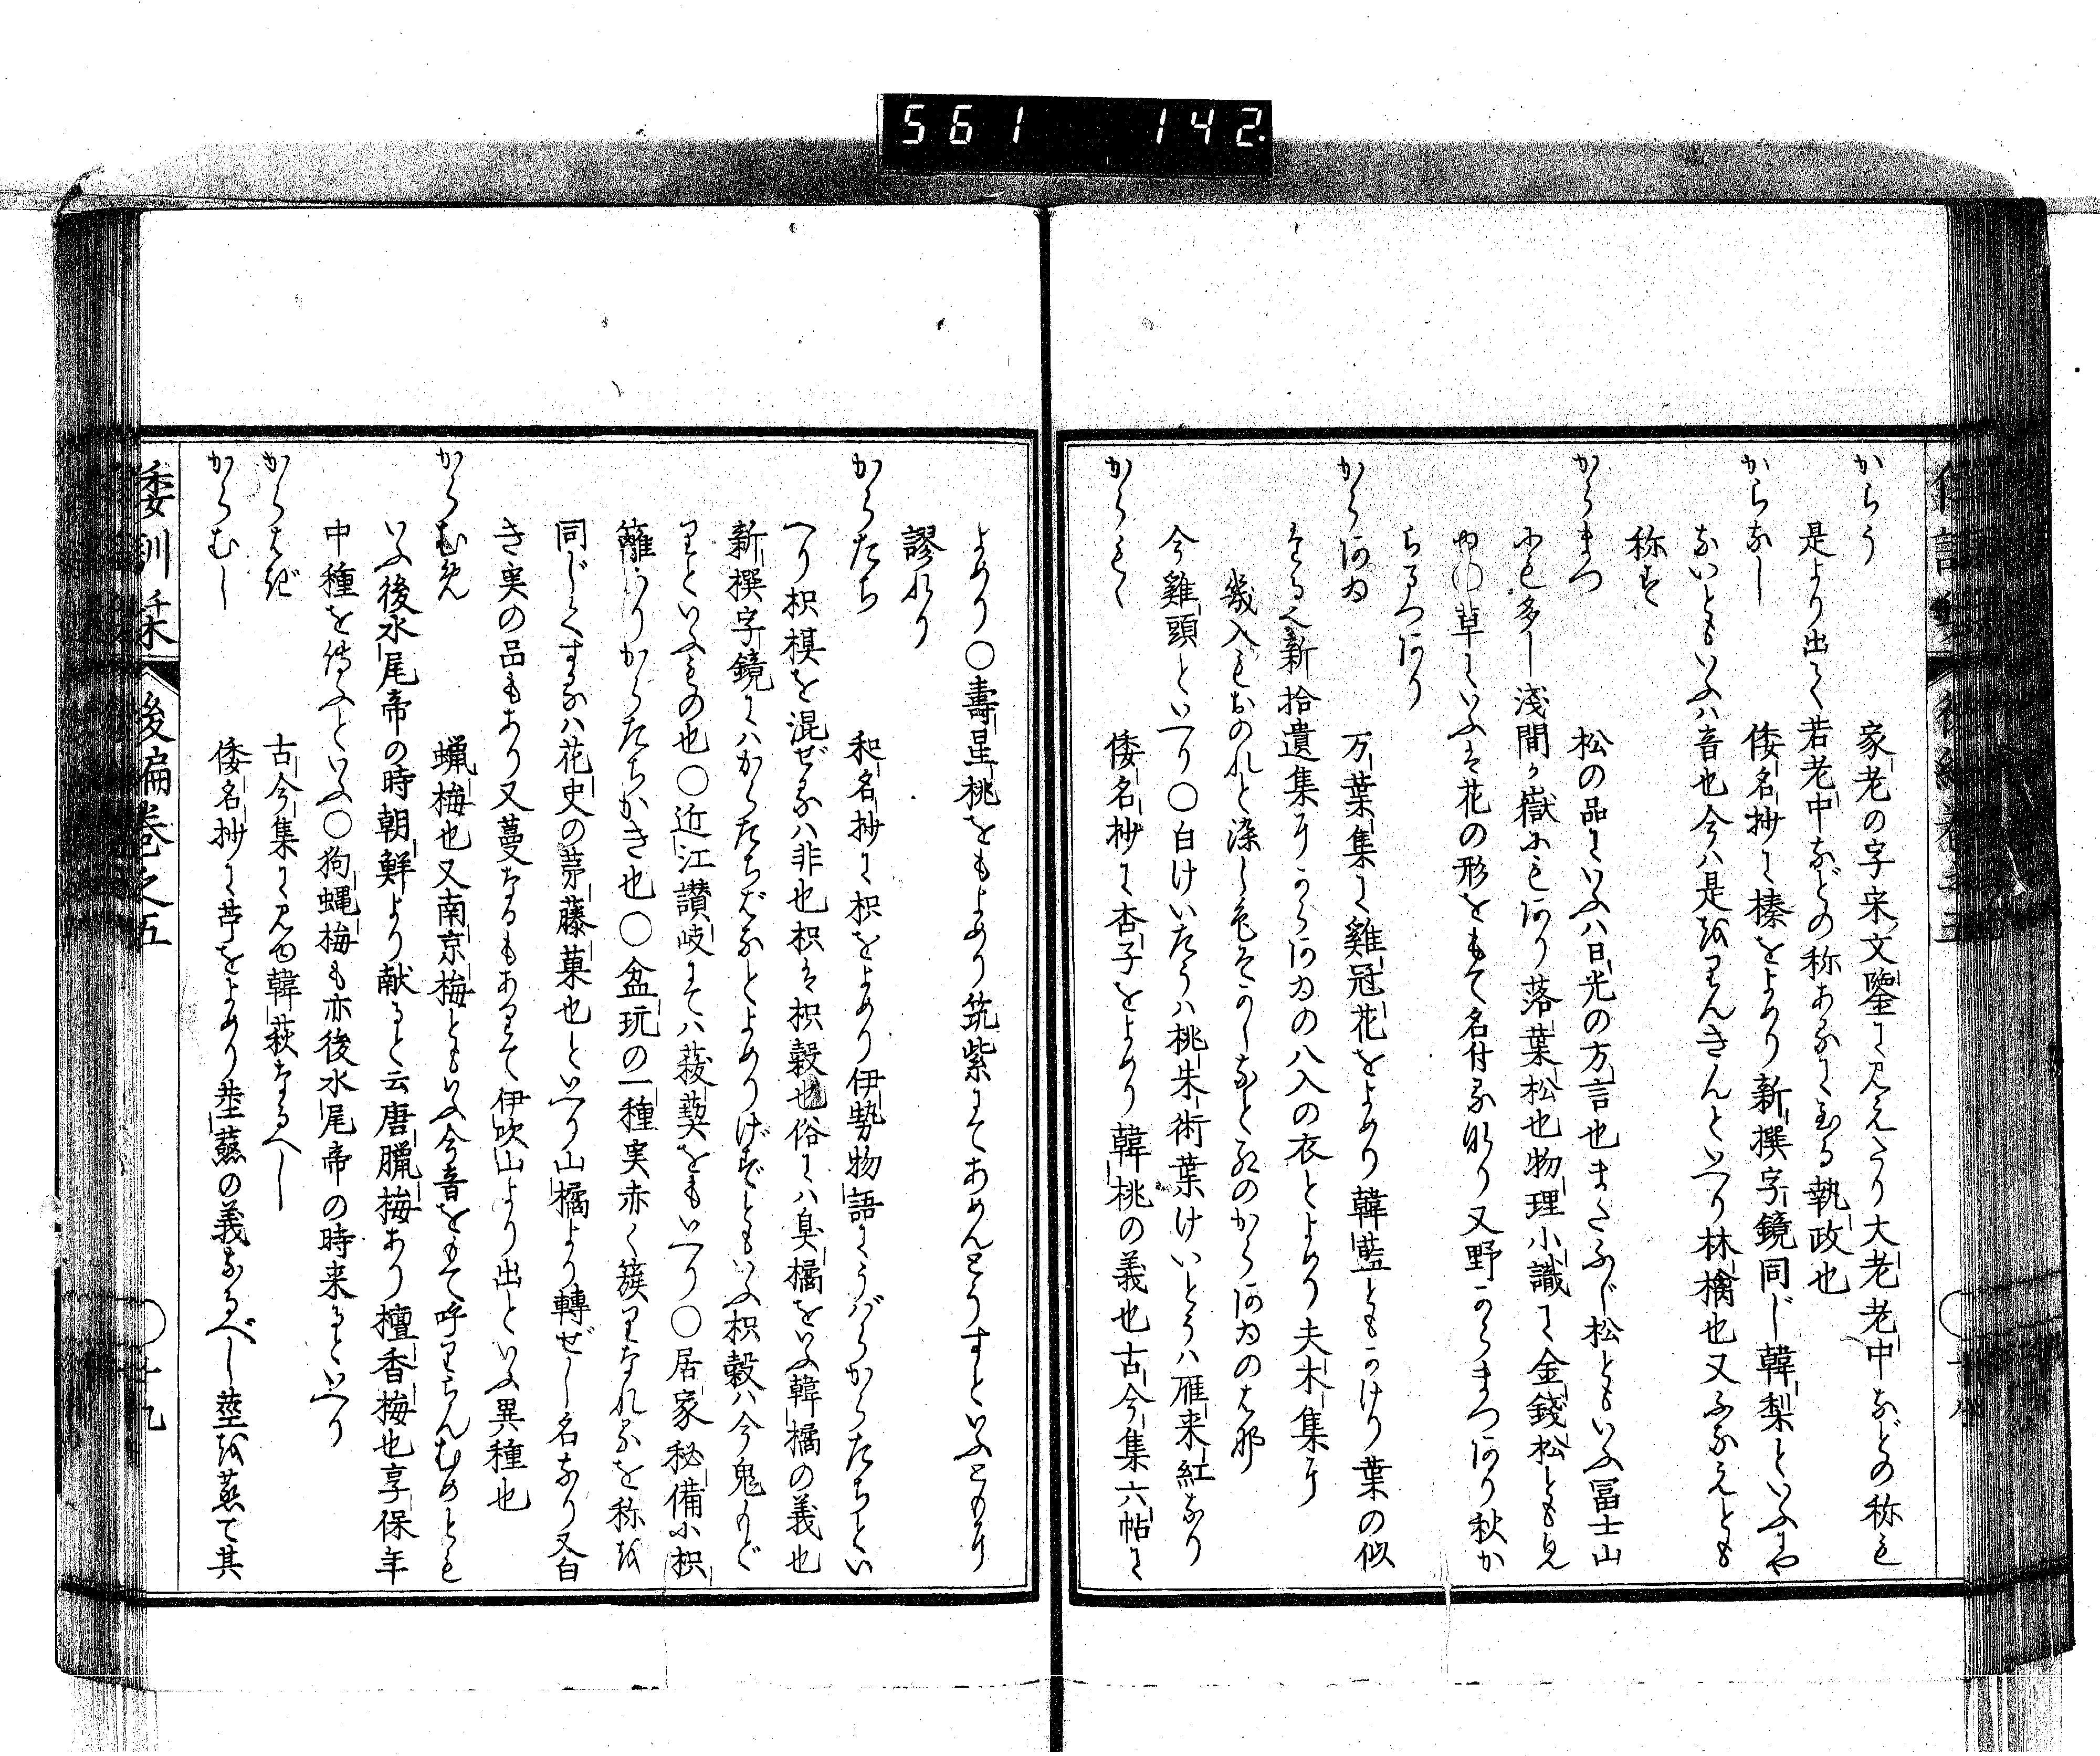 561 142
からう 家老の字宋文鑒に見えたり大老老中などの称も
是より出て若老中などの称あるに至る執政也
からなし 倭名抄に榛をよめり新撰字鏡同じ韓梨といふにや
ないともいふハ音也今ハ是をりんきんといへり林檎也又ふなえとも
称す
からまつ 松の品にいふハ日光の方言也またふじ松ともいふ冨士山
にも多し淺間ヶ嶽にもあり落葉松也物理小識に金錢松とも見
ゆ〇草にいふは花の形をもて名付る也り又野からまつあり秋か
らまつあり
からあゐ 万葉集に雞冠花をよめり韓藍ともかけり葉の似
たる也新拾遺集にからあゐの八入の衣とよめり夫木集に
幾入もおのれと染し色そかしなと紅のからあゐのはな
今雞頭といへり〇白けいたうハ桃朱術葉けいとうハ雁来紅なり
からもゝ 倭名抄に杏子をよめり韓桃の義也古今集六帖に
よめり〇壽星桃をもよめり筑紫にてあめんとうすといふとそに
謬れり
からたち 和名抄に枳をよめり伊勢物語にうばらからたちとい
へり枳椇を混ぜるハ非也枳は枳穀也俗にハ臭橘をいふ韓橘の義也
新撰字鏡にハからたちばなとよめりげずともいふ枳穀ハ今鬼うど
りといふもの也〇近江讃岐にてハ菝葜をもいへり〇居家秘備小枳
籬ありからたちかき也〇盆玩の一種実赤く簇りなれるを称を
同じくするハ花史の茅藤菓也といへり山橘より轉ぜし名なり又白
き実の品もあり又蔓なるもありて伊吹山より出といふ異種也
からむめ 蝋梅也又南京梅ともいふ今音をもて呼りらんむめとも
いふ後水尾帝の時朝鮮より献ると云唐臘梅あり檀香梅也享保年
中種を傳ふといふ〇狗蝿梅も亦後水尾帝の時来るといへり
からはぎ 古今集に見ゆ韓萩なるへし
からむし 倭名抄に苧をよめり𦵏蘓の義なるべし莖を蒸て其
倭訓栞 後編巻之五 〇十九